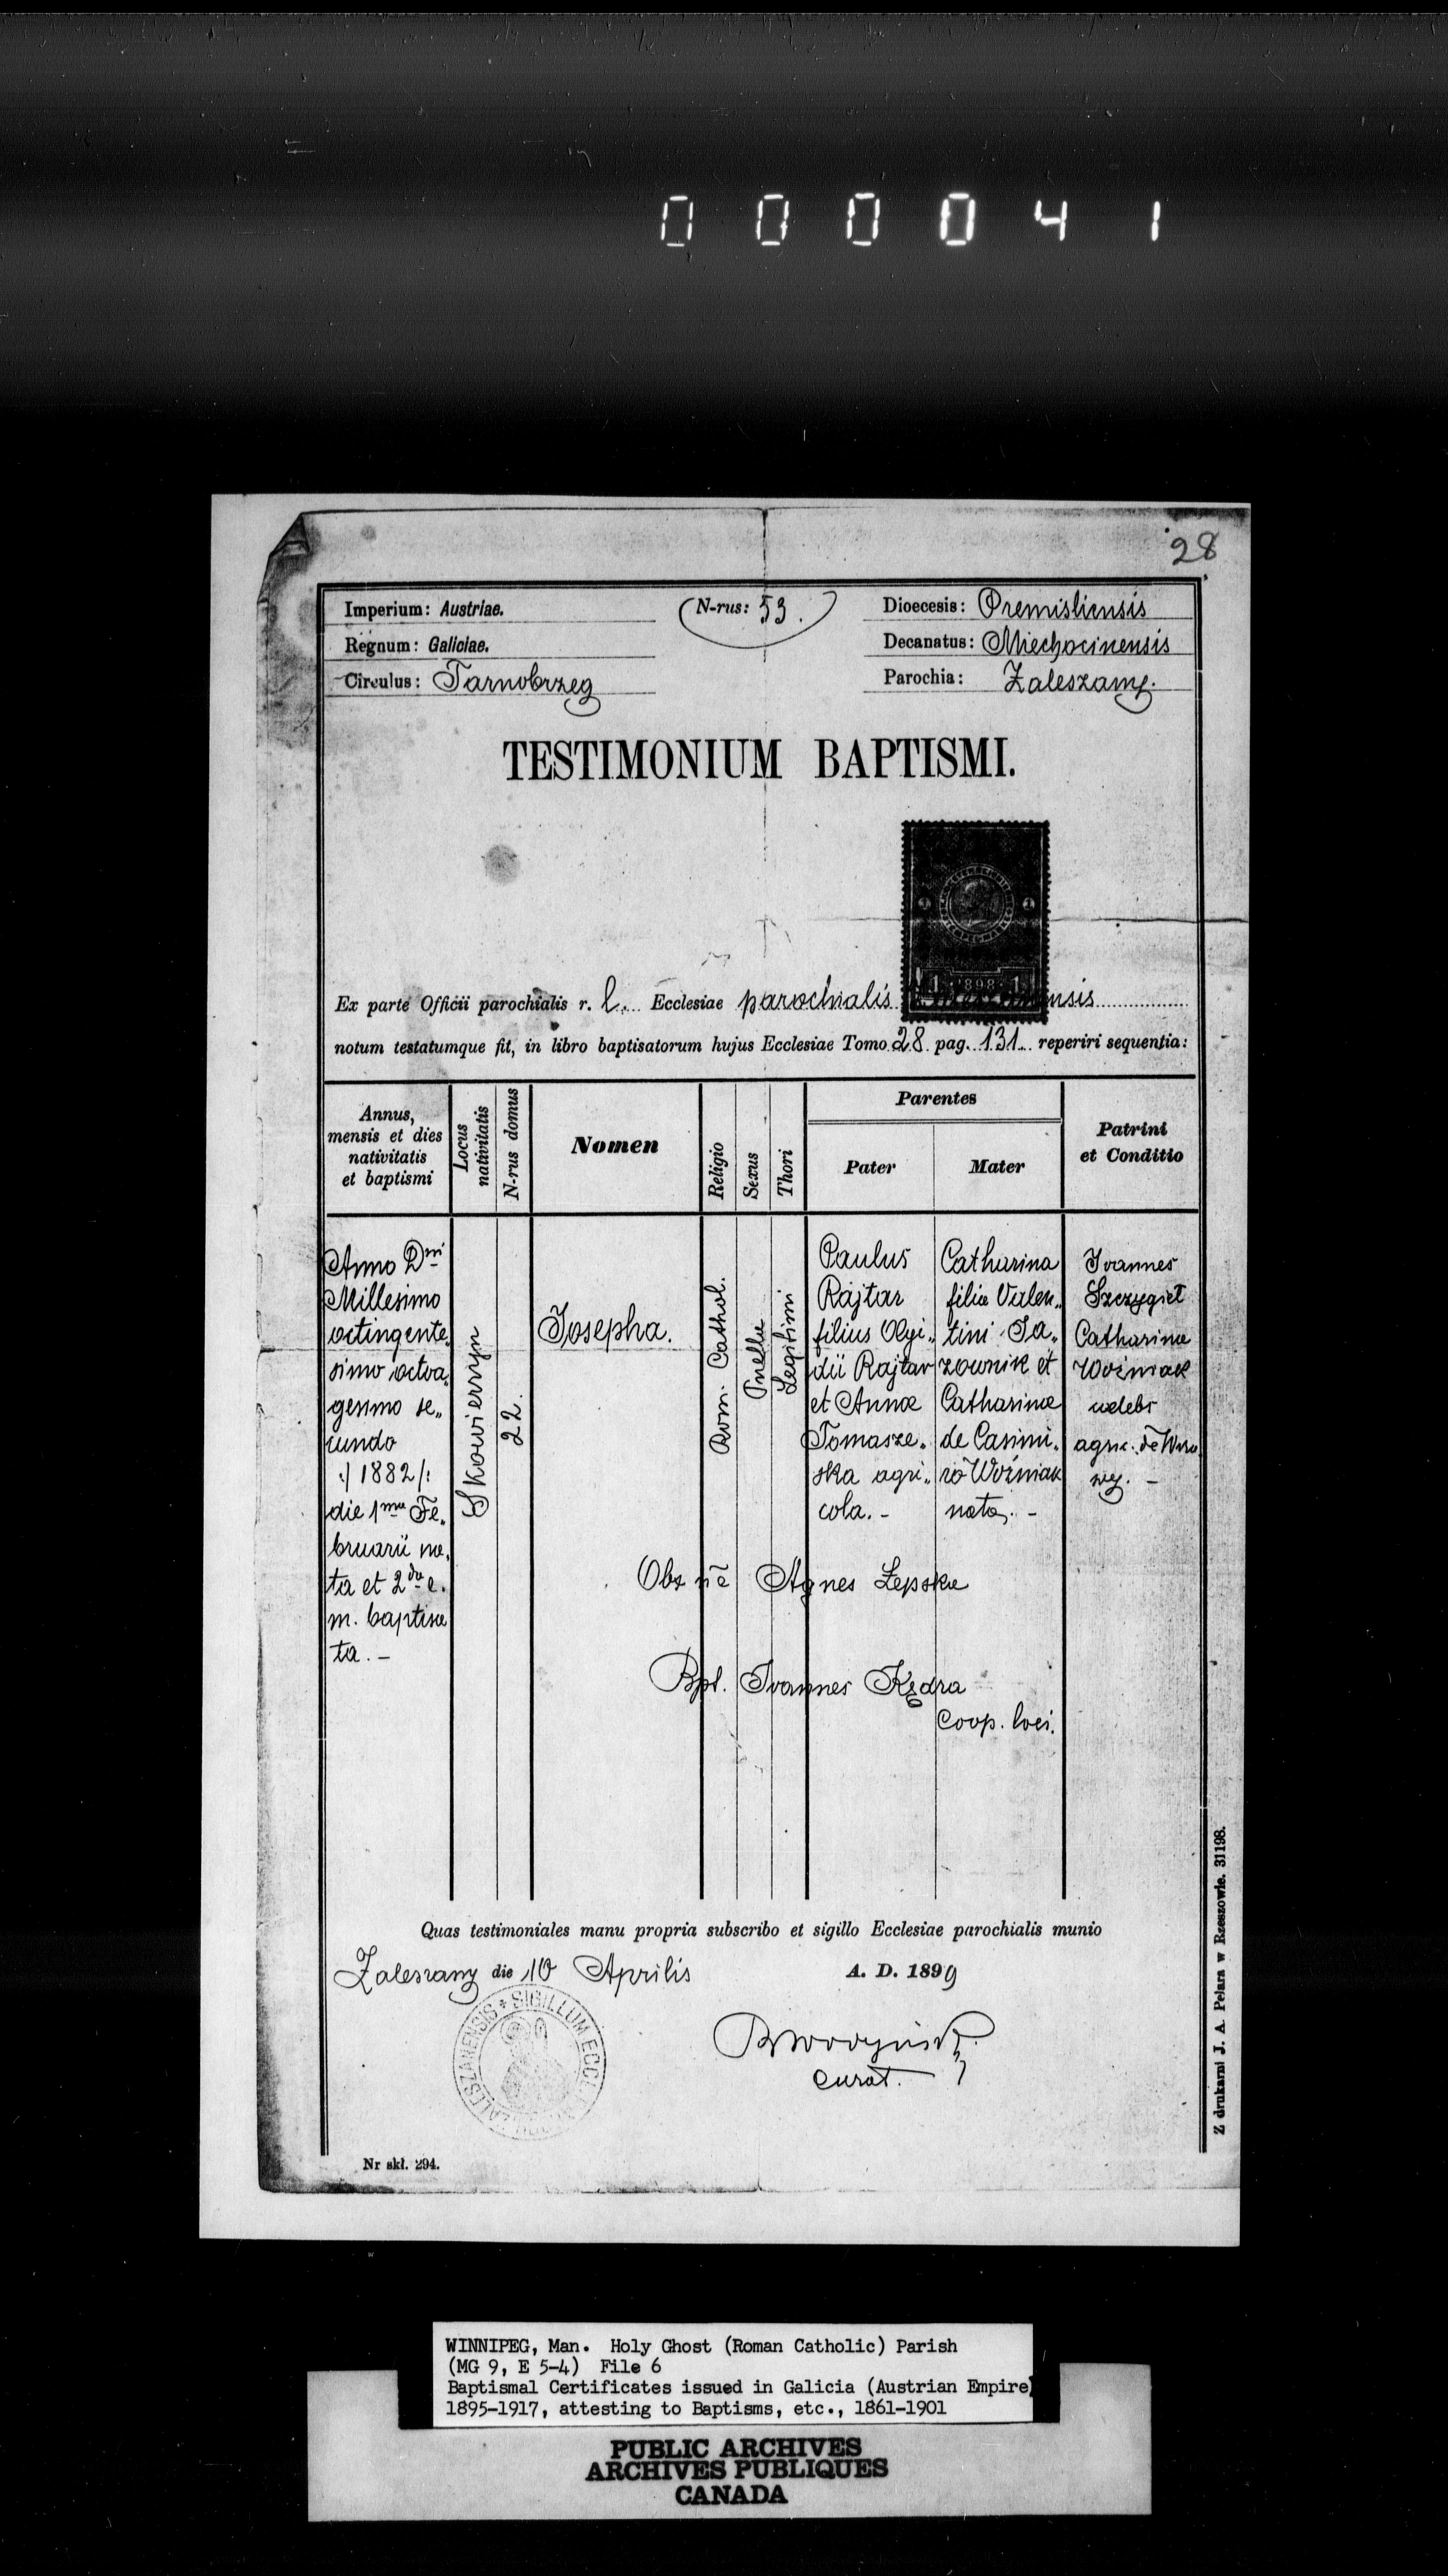 000041
28
Imperium: Austriae.
N-rus: 53.
Dioecesis: Premisliensis
Regnum: Galiciae.
Decanatus: Miechocinensis
Circulus: Tarnobrzeg
Parochia: Zaleszany.
TESTIMONIUM BAPTISMI.
1 1
1 1898 1
Ex parte Officii parochialis r. l. Ecclesiae parochialis
notum testatumque fit, in libro baptisatorum hujus Ecclesiae Tomo 28. pag. 131 reperiri sequentia:
Annus,
mensis et dies
nativitatis
et baptismi
Locus
nativitatis
N-rus domus
Nomen
Religio
Sexus
Thori
Parentes
Pater
Mater
Patrini
et Conditio
Anno Dni
Millesimo
octingente„
simo octua„
gesimo se„
cundo
:/ 1882 /:
die 1ma Fe„
bruarii na„
ta et 2da e.
m. baptisa
ta. -
Skowierzyn
22.
Josepha.
Rom. Cathol.
Puella
Legitimi
Paulus
Rajtar
filius Aegi„
dii Rajtar
et Annae
Tomasze„
ska agri„
cola. -
Catharina
filia Valen„
tini Sa„
zownik et
Catharinae
de Casimi„
ro Woźniak
nata. -
Joannes
Szczygieł
Catharina
Woźniak
caelebs
agric. de
Obs Agnes Łepska
Bpt. Joannes Kędra
Coop. loci.
Quas testimoniales manu propria subscribo et sigillo Ecclesiae parochialis munio
Zaleszany die 10 Aprilis A. D. 1899
SIGILLUM ECCL ZALESZANENSIS
curat.
Nr skł. 294.
Z drukarni J. A. Pelara w Rzeszowie. 31198.
WINNIPEG, Man. Holy Ghost (Roman Catholic) Parish
(MG 9, E 5-4) File 6
Baptismal Certificates issued in Galicia (Austrian Empire)
1895-1917, attesting to Baptisms, etc., 1861-1901
PUBLIC ARCHIVES
ARCHIVES PUBLIQUES
CANADA